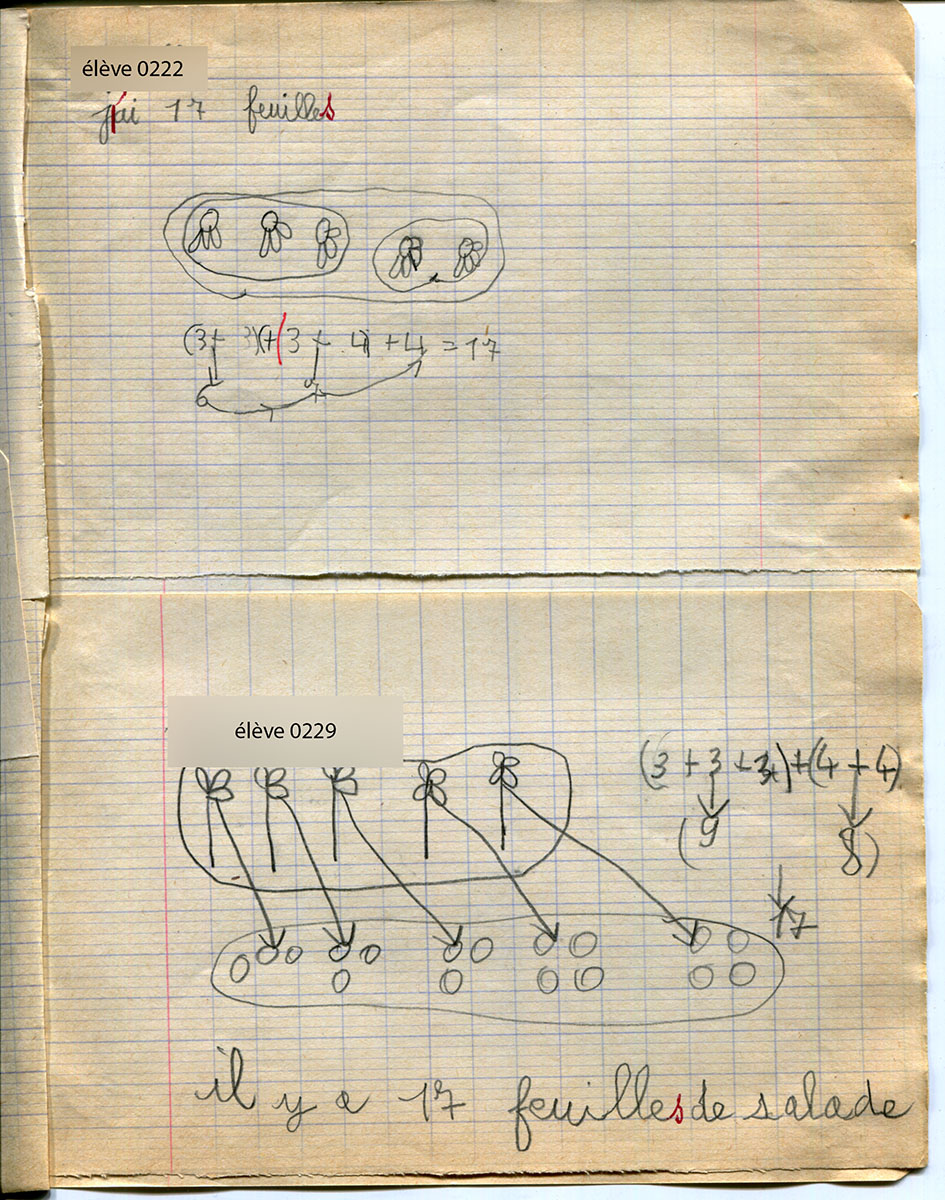 élève 0222
j'ai 17 feuilles
(3+ 3)(+(3 + 4) + 4 = 17
6 7
élève 0229
(3 + 3 + 3) + (4 + 4)
(9 8)
17
il y a 17 feuilles de salade